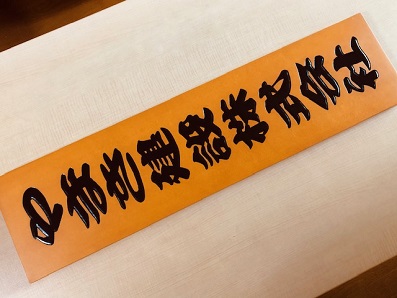 やまき建設株式会社